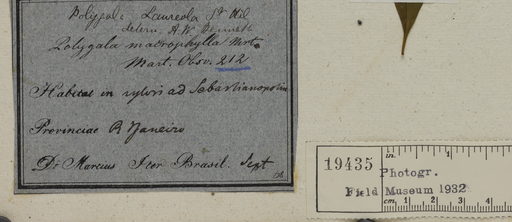 Polygala Laureola St Hil
determ. A.W. Bennett
Polygala macrophylla Mart.
Mart. Obsv. 212
Habitat in sylvis ad Sebastianopolin
Provinciae R. Janeiro
Dr Martius Iter Brasil. Sept
19435
Photogr.
Field Museum 1932
in. 1
cm 1 2 3 4